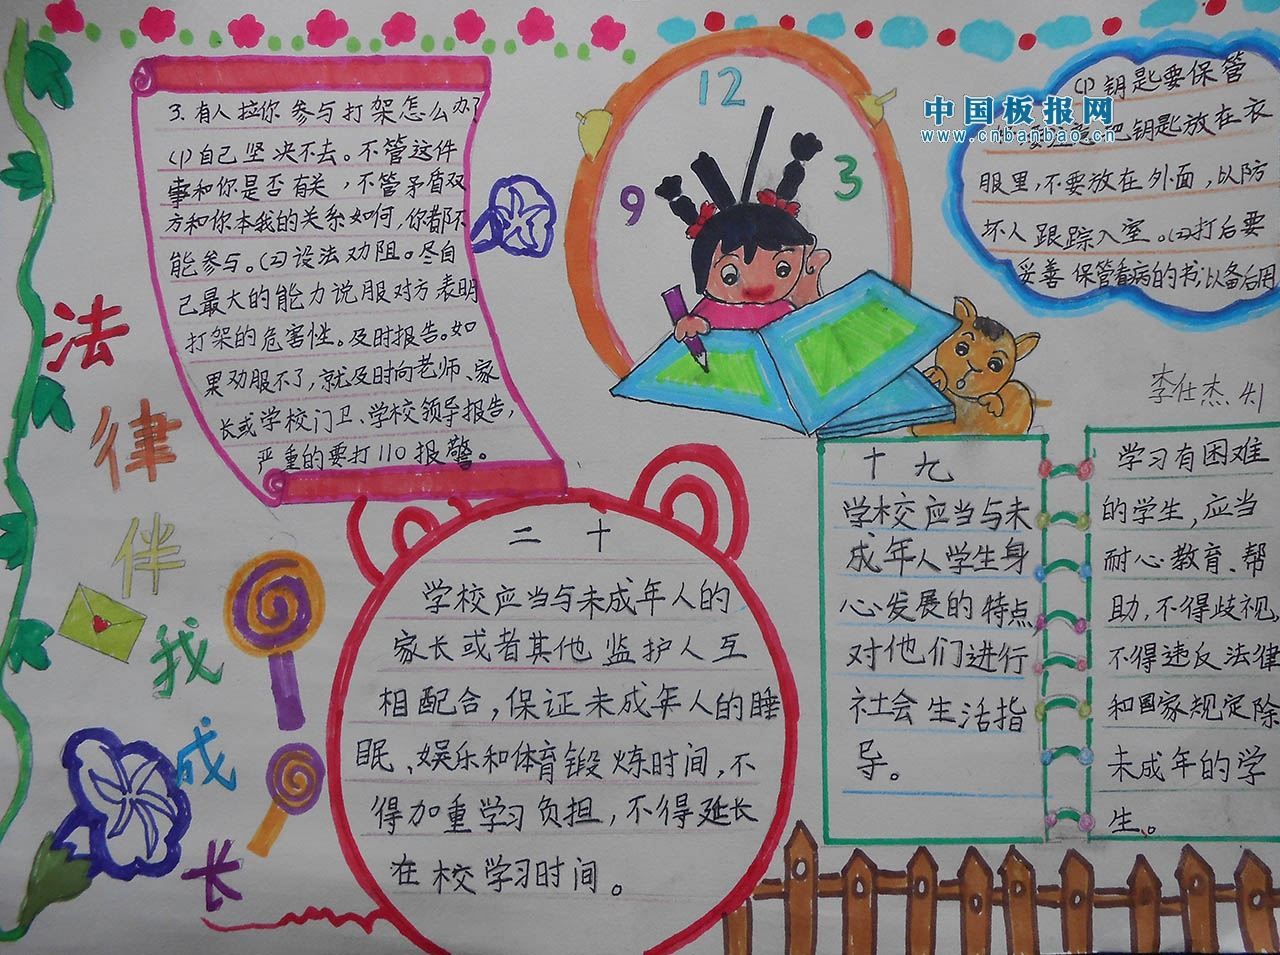 3.有人拉你参与打架怎么办?
(1)自己坚决不去。不管这件
事和你是否有关，不管矛盾双
方和你本我的关系如何，你都不
能参与。(2)设法劝阻。尽自
己最大的能力说服对方表明
打架的危害性。及时报告。如
果劝服不了，就及时向老师、家
长或学校门卫、学校领导报告，
严重的要打110报警。
12
9
3
中国板报网
www.cnbanbao.cn
(1)钥匙要保管
把钥匙放在衣
服里，不要放在外面，以防
坏人跟踪入室。(2)打后要
妥善保管看病的书，以备后用
李仕杰.41
法律伴我成长
二十
学校应当与未成年人的
家长或者其他监护人互
相配合，保证未成年人的睡
眠、娱乐和体育锻炼时间，不
得加重学习负担，不得延长
在校学习时间。
十九
学校应当与未
成年人学生身
心发展的特点
对他们进行
社会生活指
导。
学习有困难
的学生，应当
耐心教育、帮
助，不得歧视
不得违反法律
和国家规定除
未成年的学
生。